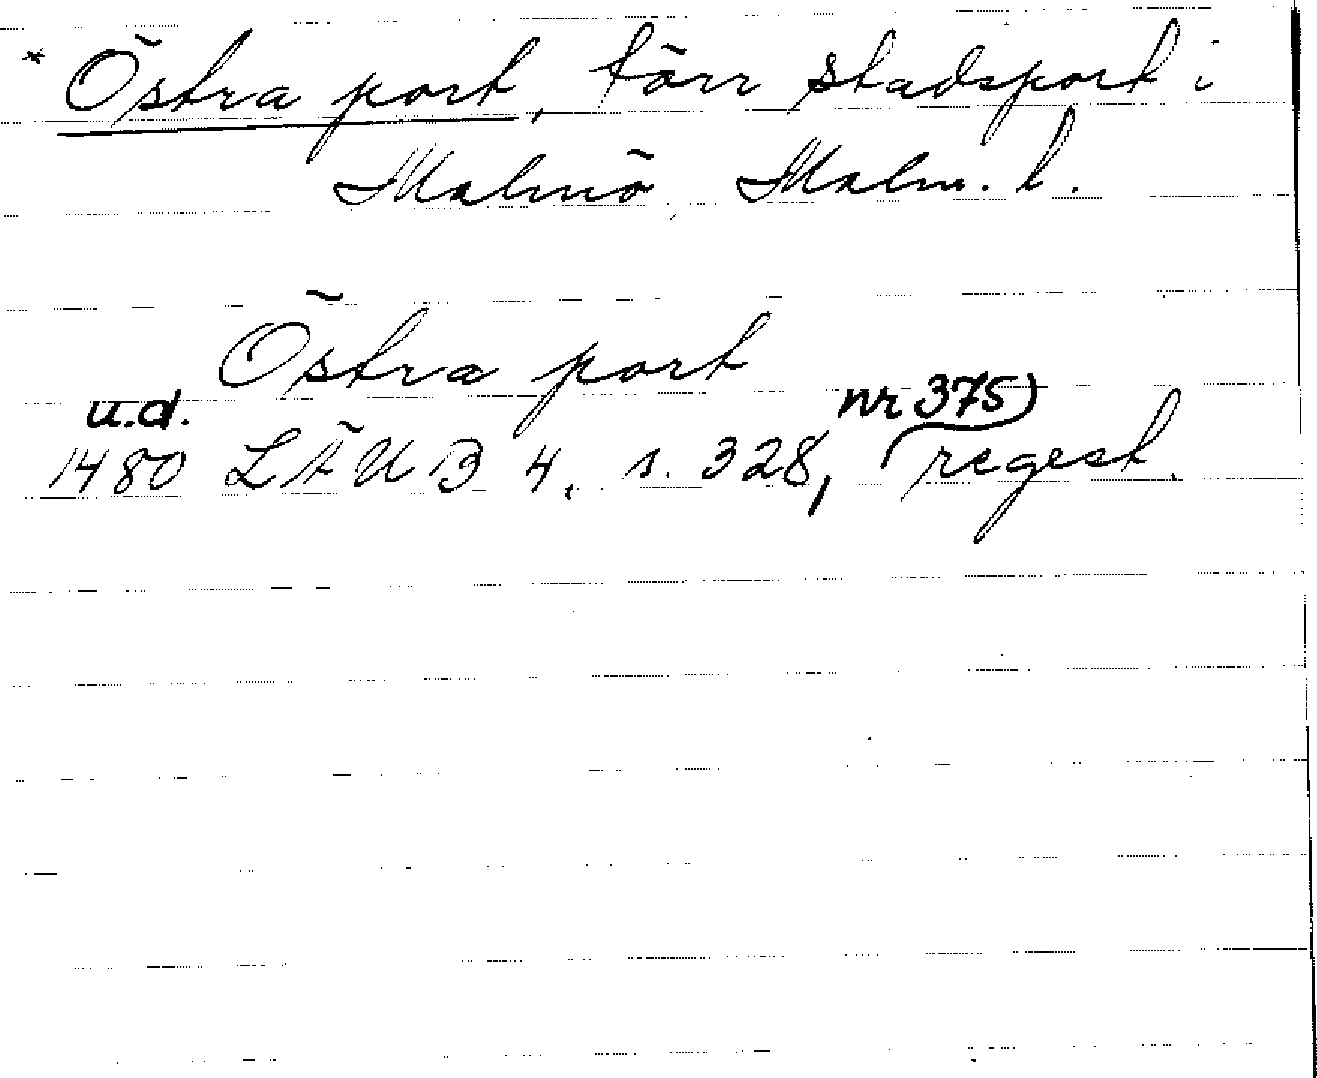 * Östra port, förr stadsport i
Malmö, Malm. l.
Östra port
u.d. nr 375)
1480 LÄUB 4, s. 328, regest.